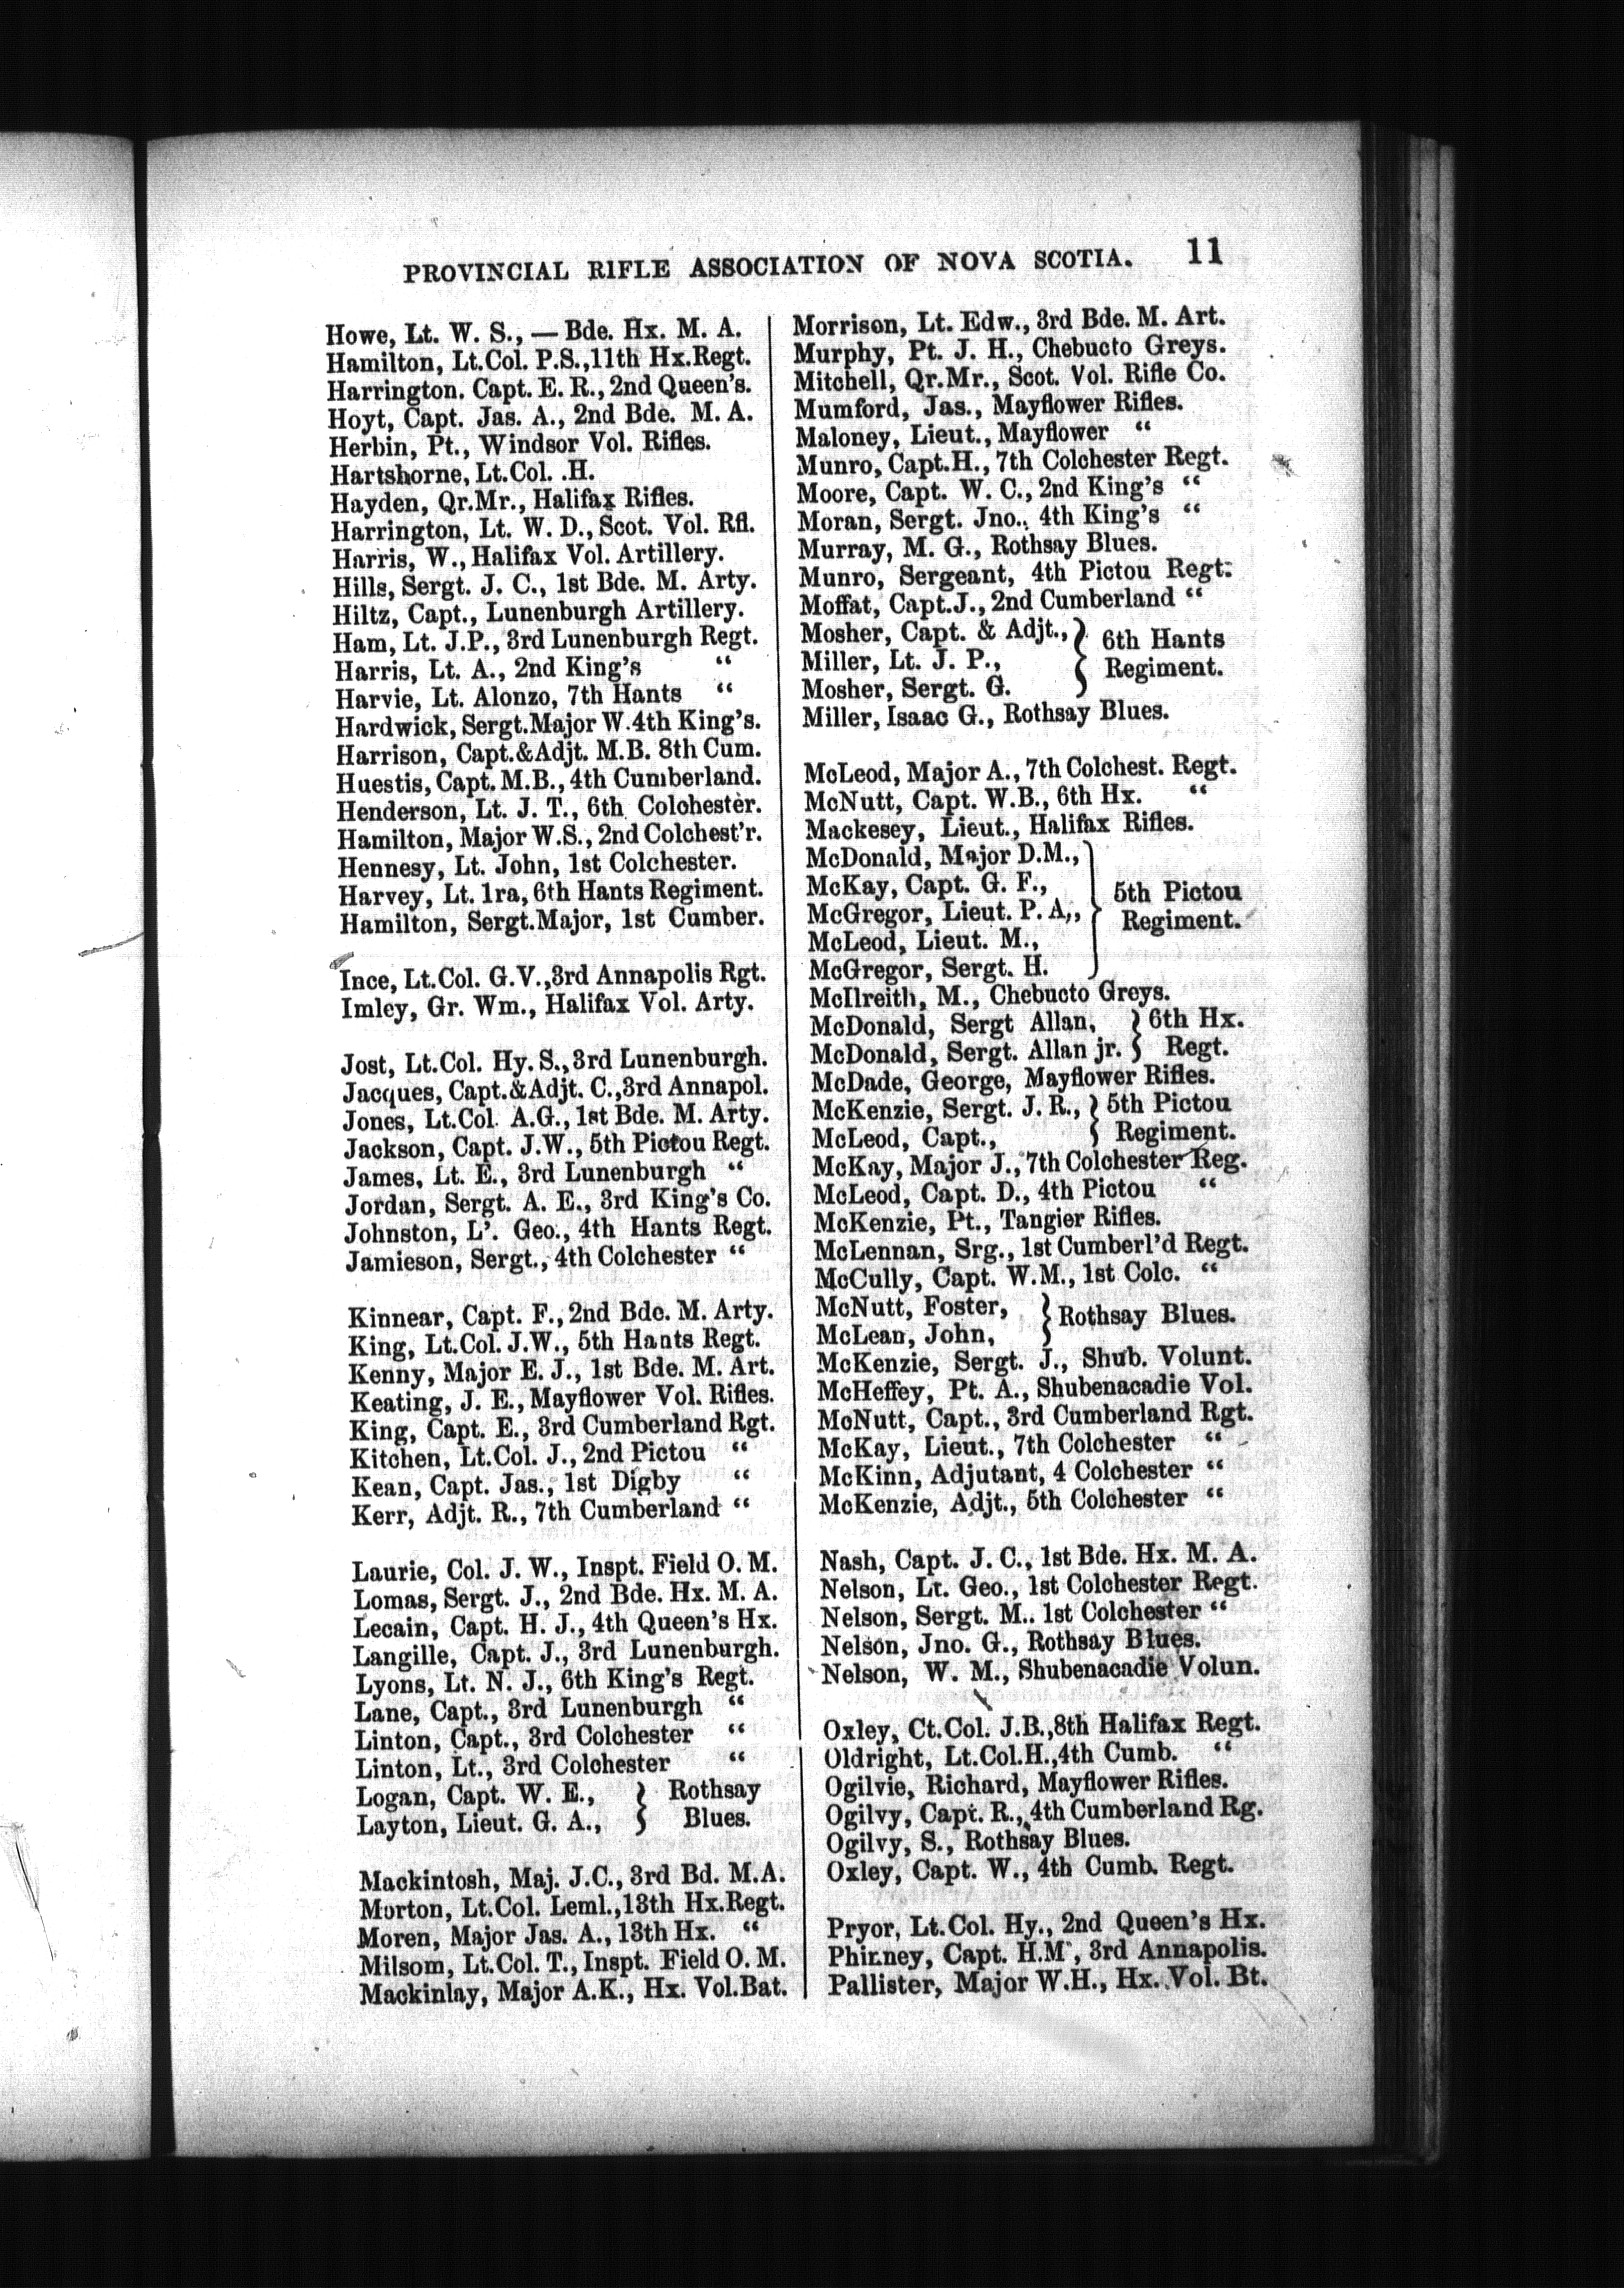 PROVINCIAL RIFLE ASSOCIATION OF NOVA SCOTIA. 11
Howe, Lt. W. S., — Bde. Hx. M. A.
Hamilton, Lt.Col. P.S.,11th Hx.Regt.
Harrington. Capt. E. R., 2nd Queen's.
Hoyt, Capt. Jas. A., 2nd Bde. M. A.
Herbin, Pt., Windsor Vol. Rifles.
Hartshorne, Lt.Col. .H.
Hayden, Qr.Mr., Halifax Rifles.
Harrington, Lt. W. D., Scot. Vol. Rfl.
Harris, W., Halifax Vol. Artillery.
Hills, Sergt. J. C., 1st Bde. M. Arty.
Hiltz, Capt., Lunenburgh Artillery.
Ham, Lt. J.P., 3rd Lunenburgh Regt.
Harris, Lt. A., 2nd King's “
Harvie, Lt. Alonzo, 7th Hants “
Hardwick, Sergt.Major W.4th King's.
Harrison, Capt.&Adjt. M.B. 8th Cum.
Huestis, Capt. M.B., 4th Cumberland.
Henderson, Lt. J. T., 6th Colohester.
Hamilton, Major W.S., 2nd Colchest'r.
Hennesy, Lt. John, 1st Colchester.
Harvey, Lt. 1ra, 6th Hants Regiment.
Hamilton, Sergt.Major, 1st Cumber.
Ince, Lt.Col. G.V.,3rd Annapolis Rgt.
Imley, Gr. Wm., Halifax Vol. Arty.
Jost, Lt.Col. Hy. S.,3rd Lunenburgh.
Jacques, Capt.&Adjt. C.,3rd Annapol.
Jones, Lt.Col. A.G., 1st Bde. M. Arty.
Jackson, Capt. J.W., 5th Pictou Regt.
James, Lt. E., 3rd Lunenburgh “
Jordan, Sergt. A. E., 3rd King's Co.
Johnston, L'. Geo., 4th Hants Regt.
Jamieson, Sergt., 4th Colchester “
Kinnear, Capt. F., 2nd Bde. M. Arty.
King, Lt.Col. J.W., 5th Hants Regt.
Kenny, Major E. J., 1st Bde. M. Art.
Keating, J. E., Mayflower Vol. Rifles.
King, Capt. E., 3rd Cumberland Rgt.
Kitchen, Lt.Col. J., 2nd Pictou “
Kean, Capt. Jas., 1st Digby “
Kerr, Adjt. R., 7th Cumberland “
Laurie, Col. J. W., Inspt. Field O. M.
Lomas, Sergt. J., 2nd Bde. Hx. M. A.
Lecain, Capt. H. J., 4th Queen's Hx.
Langille, Capt. J., 3rd Lunenburgh.
Lyons, Lt. N. J., 6th King's Regt.
Lane, Capt., 3rd Lunenburgh “
Linton, Capt., 3rd Colchester “
Linton, Lt., 3rd Colchester “
Logan, Capt. W. E., } Rothsay
Layton, Lieut. G. A., } Blues.
Mackintosh, Maj. J.C., 3rd Bd. M.A.
Morton, Lt.Col. Leml.,13th Hx.Regt.
Moren, Major Jas. A., 13th Hx. “
Milsom, Lt.Col. T., Inspt. Field O. M.
Mackinlay, Major A.K., Hx. Vol.Bat.
Morrison, Lt. Edw., 3rd Bde. M. Art.
Murphy, Pt. J. H., Chebucto Greys.
Mitchell, Qr.Mr., Scot. Vol. Rifle Co.
Mumford, Jas., Mayflower Rifles.
Maloney, Lieut., Mayflower “
Munro, Capt.H., 7th Colchester Regt.
Moore, Capt. W. C., 2nd King's “
Moran, Sergt. Jno., 4th King's “
Murray, M. G., Rothsay Blues.
Munro, Sergeant, 4th Pictou Regt.
Moffat, Capt.J., 2nd Cumberland “
Mosher, Capt. & Adjt., } 6th Hants
Miller, Lt. J. P., } Regiment.
Mosher, Sergt. G.
Miller, Isaac G., Rothsay Blues.
McLeod, Major A., 7th Colchest. Regt.
McNutt, Capt. W.B., 6th Hx. “
Mackesey, Lieut., Halifax Rifles.
McDonald, Major D.M.,
McKay, Capt. G. F., } 5th Pictou
McGregor, Lieut. P. A,, } Regiment.
McLeod, Lieut. M.,
McGregor, Sergt. H.
McIlreith, M., Chebucto Greys.
McDonald, Sergt Allan, } 6th Hx.
McDonald, Sergt. Allan jr. } Regt.
McDade, George, Mayflower Rifles.
McKenzie, Sergt. J. R., } 5th Pictou
McLeod, Capt., } Regiment.
McKay, Major J., 7th Colchester Reg.
McLeod, Capt. D., 4th Pictou “
McKenzie, Pt., Tangier Rifles.
McLennan, Srg., 1st Cumberl'd Regt.
McCully, Capt. W.M., 1st Colc. “
McNutt, Foster, } Rothsay Blues.
McLean, John,
McKenzie, Sergt. J., Shub. Volunt.
McHeffey, Pt. A., Shubenacadie Vol.
McNutt, Capt., 3rd Cumberland Rgt.
McKay, Lieut., 7th Colchester “
McKinn, Adjutant, 4 Colchester “
McKenzie, Adjt., 5th Colchester “
Nash, Capt. J. C., 1st Bde. Hx. M. A.
Nelson, Lt. Geo., 1st Colchester Regt.
Nelson, Sergt. M.. 1st Colchester “
Nelson, Jno. G., Rothsay Blues.
Nelson, W. M., Shubenacadie Volun.
Oxley, Ct.Col. J.B.,8th Halifax Regt.
Oldright, Lt.Col.H.,4th Cumb. “
Ogilvie, Richard, Mayflower Rifles.
Ogilvy, Capt. R., 4th Cumberland Rg.
Ogilvy, S., Rothsay Blues.
Oxley, Capt. W., 4th Cumb. Regt.
Pryor, Lt.Col. Hy., 2nd Queen's Hx.
Phinney, Capt. H.M', 3rd Annapolis.
Pallister, Major W.H., Hx. Vol. Bt.